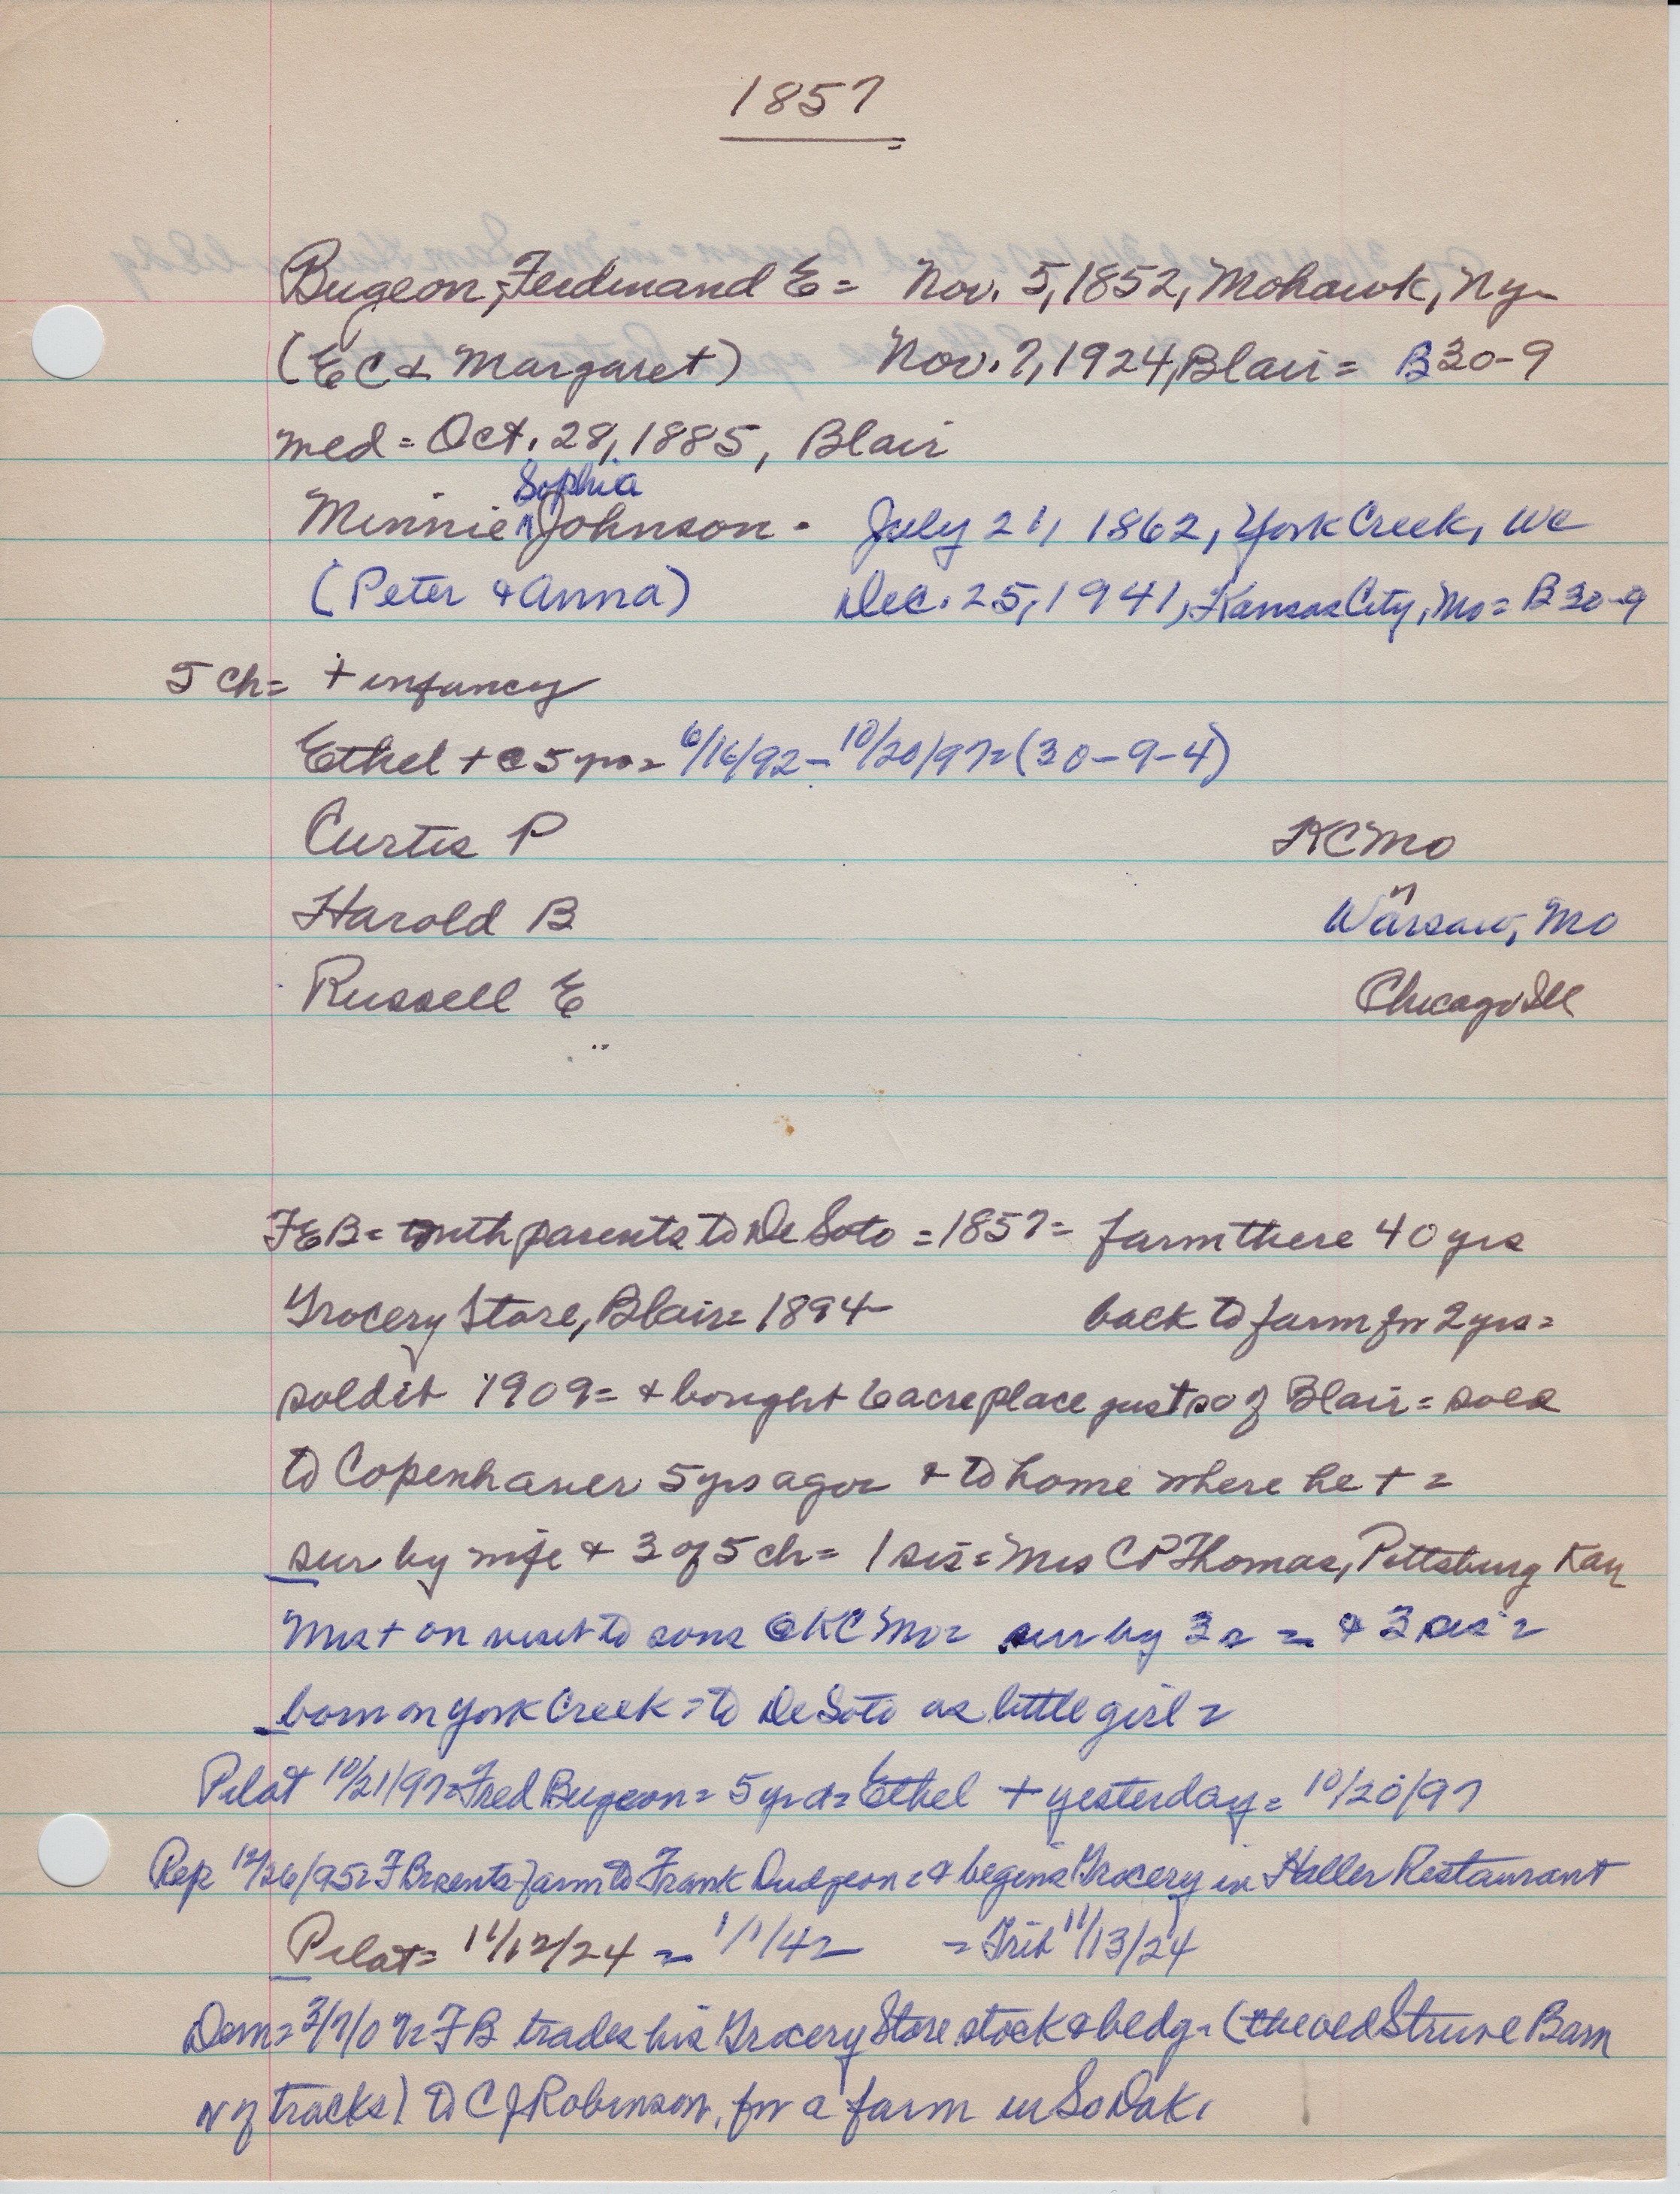 1857
Bugeon, Ferdinand E = Nov. 5, 1852, Mohawk, Ny =
(E C & Margaret) Nov. 7, 1924, Blair = B 30-9
med = Oct. 28, 1885, Blair
Sophia
Minnie ^ Johnson - July 21, 1862, York Creek, WC
(Peter & Anna) Dec. 25, 1941, Kansas City, Mo = B 30-9
5 ch = + infancy
Ethel + @ 5 yrs = 6/16/92 - 10/20/97 = (30-9-4)
Curtis P KCMo
Harold B " Warsaw, Mo
Russell E Chicago Ill
FEB = with parents to De Soto = 1857 = farm there 40 yrs
Grocery Store, Blair = 1894 back to farm for 2 yrs =
sold it 1909 = & bought 6 acre place just so of Blair = sold
to Copenhaver 5 yrs ago = & to home where he + =
sur by wife & 3 of 5 ch = 1 sis = Mrs C P Thomas, Pittsburg Kan
Mrs + on visit to sons @ KC Mo = sur by 3 s = & 3 sis =
born on York Creek = to De Soto as little girl =
Pilot 10/21/97 = Fred Bugeon = 5 yr d = Ethel + yesterday = 10/20/97
Rep 12/26/95 = FB rents farm to Frank Dudgeon = & begins Grocery in Haller Restaurant
Pilot = 11/12/24 = 1/1/42 = Trib 11/13/24
Dem = 3/7/07 = FB trades his Grocery Store stock & bldg = (the old Struve Barn
N of tracks) to C J Robinson, for a farm in So Dak.